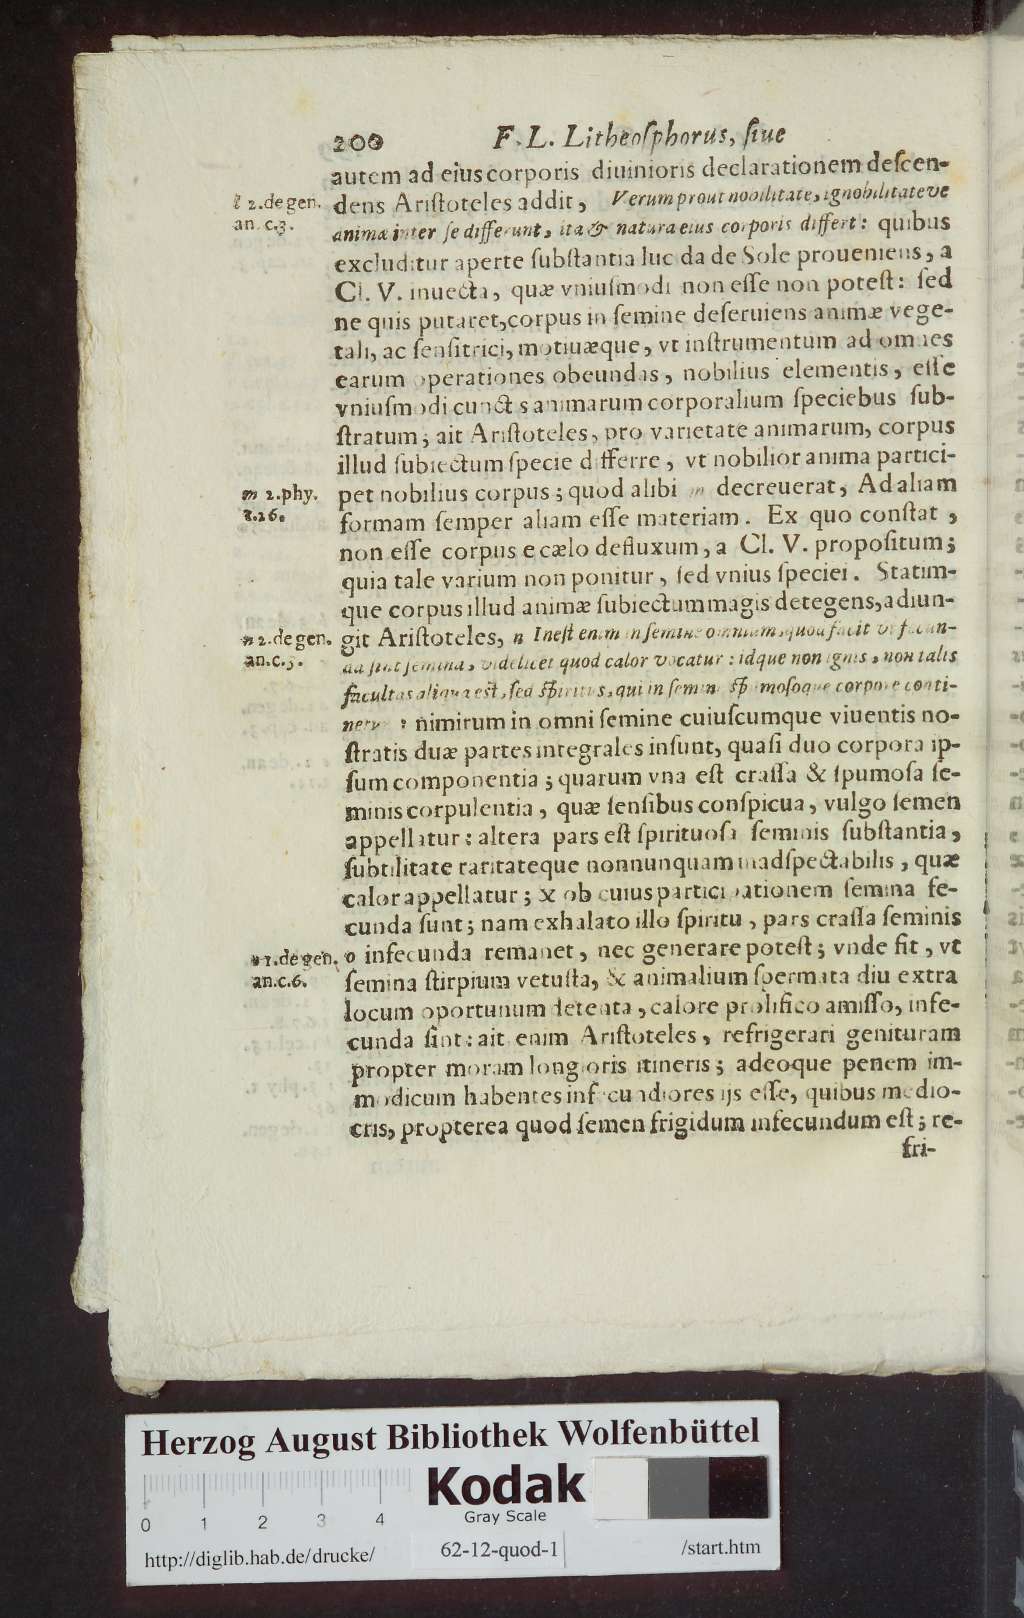 200 F. L. Litheoſphorus, ſiue
autem ad eius corporis diuinioris declarationem deſcen-
l 2. de gen. an. c.3.
dens Ariſtoteles addit, Verum prout nobilitate, ignobilitateve
animæ inter ſe differunt, ita & natura eius corporis differt: quibus
excluditur aperte ſubſtantia lucida de Sole proueniens, a
Cl. V. inuecta, quæ vniuſmodi non eſſe non poteſt: ſed
ne quis putaret, corpus in ſemine deſeruiens animæ vege-
tali, ac ſenſitrici, motiuæque, vt inſtrumentum ad omnes
earum operationes obeundas, nobilius elementis, eſſe
vniuſmodi cunctis animarum corporalium ſpeciebus ſub-
ſtratum; ait Ariſtoteles, pro varietate animarum, corpus
illud ſubiectum ſpecie differre, vt nobilior anima partici-
m 2. phy. t.26.
pet nobilius corpus; quod alibi m decreuerat, Ad aliam
formam ſemper aliam eſſe materiam. Ex quo conſtat,
non eſſe corpus e cælo defluxum, a Cl. V. propoſitum;
quia tale varium non ponitur, ſed vnius ſpeciei. Statim-
que corpus illud animæ ſubiectum magis detegens, adiun-
n 2. de gen. an. c.3.
git Ariſtoteles, n Ineſt enim in ſemine omnium, quod facit vt fecun-
da ſint ſemina, videlicet quod calor vocatur: idque non ignis, non talis
facultas aliqua eſt, ſed ſpiritus, qui in ſemine ſpumoſoque corpore conti-
netur: nimirum in omni ſemine cuiuſcumque viuentis no-
ſtratis duæ partes integrales inſunt, quaſi duo corpora ip-
ſum componentia; quarum vna eſt craſſa & ſpumoſa ſe-
minis corpulentia, quæ ſenſibus conſpicua, vulgo ſemen
appellatur: altera pars eſt ſpirituoſa ſeminis ſubſtantia,
ſubtilitate raritateque nonnunquam inadſpectabilis, quæ
calor appellatur; & ob cuius participationem ſemina fe-
cunda ſunt; nam exhalato illo ſpiritu, pars craſſa ſeminis
o 1. de gen. an. c.6.
o infecunda remanet, nec generare poteſt; vnde fit, vt
ſemina ſtirpium vetuſta, & animalium ſpermata diu extra
locum oportunum detenta, calore prolifico amiſſo, infe-
cunda ſint: ait enim Ariſtoteles, refrigerari genituram
propter moram longioris itineris; adeoque penem im-
modicum habentes infecundiores ijs eſſe, quibus medio-
cris, propterea quod ſemen frigidum infecundum eſt; re-
fri-
Herzog August Bibliothek Wolfenbüttel
Kodak
Gray Scale
0 1 2 3 4
http://diglib.hab.de/drucke/ 62-12-quod-1 /start.htm